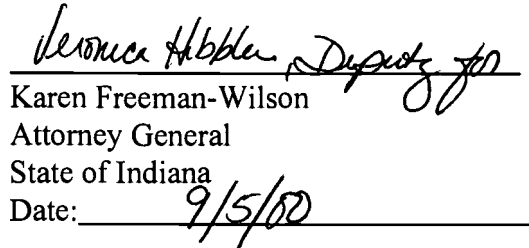 Veronica Hibbler, Deputy for
Karen Freeman-Wilson
Attorney General
State of Indiana
Date: 9/5/00